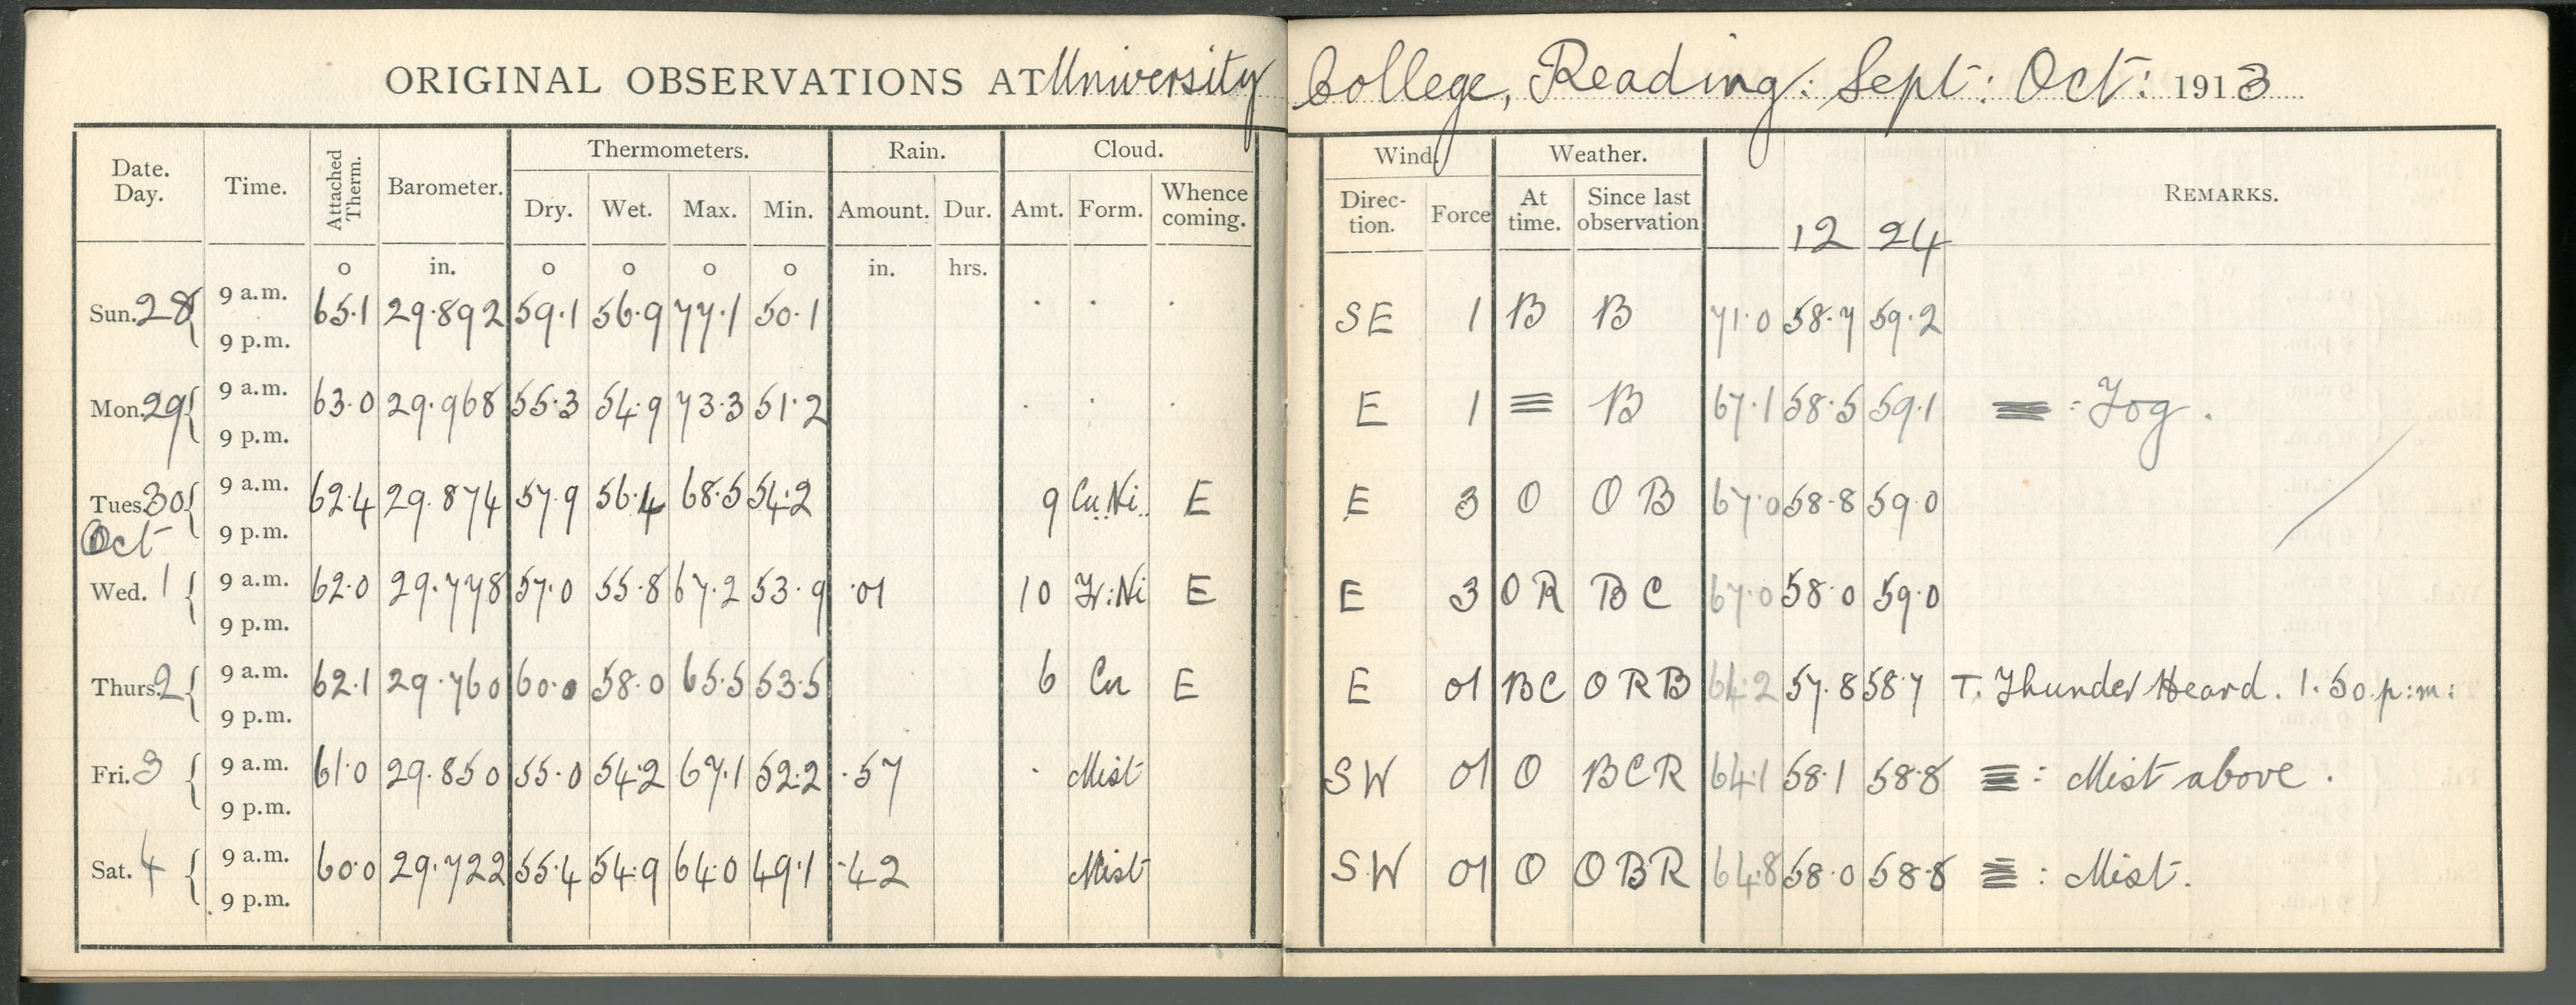 ORIGINAL OBSERVATIONS AT University College, Reading: Sept: Oct: 1913
Date. Day. Time. Attached Therm. Barometer. Thermometers. Rain. Cloud. Wind. Weather. REMARKS.
Dry. Wet. Max. Min. Amount. Dur. Amt. Form. Whence coming. Direction. Force At time. Since last observation 12 24
o in. o o o o in. hrs.
Sun. 28 { 9 a.m. 65.1 29.892 59.1 56.9 77.1 50.1 . . . SE 1 B B 71.0 58.7 59.2
9 p.m.
Mon. 29 { 9 a.m. 63.0 29.968 55.3 54.9 73.3 51.2 . . . E 1 ≡ B 67.1 58.5 59.1 ≡ : Fog.
9 p.m.
Tues. 30 { 9 a.m. 62.4 29.874 57.9 56.4 68.5 54.2 9 Cu. Ni. E E 3 O O B 67.0 58.8 59.0
9 p.m.
Oct
Wed. 1 { 9 a.m. 62.0 29.778 57.0 55.8 67.2 53.9 .01 10 Fr: Ni E E 3 O R B C 67.0 58.0 59.0
9 p.m.
Thurs. 2 { 9 a.m. 62.1 29.760 60.0 58.0 65.5 53.5 6 Cu E E 01 BC O R B 64.2 57.8 58.7 T. Thunder Heard. 1.50 p:m:
9 p.m.
Fri. 3 { 9 a.m. 61.0 29.850 55.0 54.2 67.1 52.2 .57 . Mist SW 01 O BCR 64.1 58.1 58.8 ≡ : Mist above.
9 p.m.
Sat. 4 { 9 a.m. 60.0 29.722 55.4 54.9 64.0 49.1 .42 Mist SW 01 O OBR 64.8 58.0 58.8 ≡ : Mist.
9 p.m.